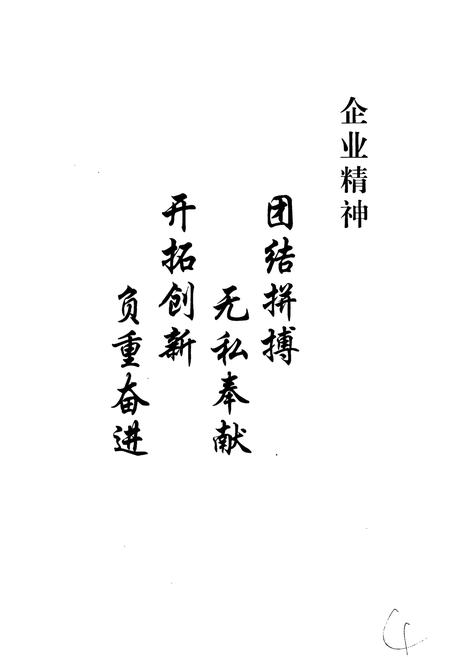 企业精神
团结拼搏
无私奉献
开拓创新
负重奋进